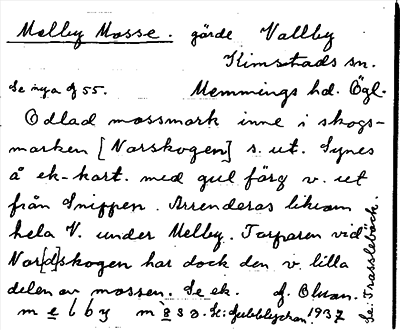 Melby Mosse. gärde Vallby
Kimstads sn.
Se nya g 55. Memmings hd. Ögl.
Odlad mossmark inne i skogs-
marken [Norskogen] s. ut. Synes
å ek-kart. med gul färg v. ut
från Snippen. Arrenderas liksom
hela V. under Melby. Torparen vid
Nor[d]skogen har dock den v. lilla
delen av mossen. Se ek. 
melby måsa. 1937
Se Trasslebäck.